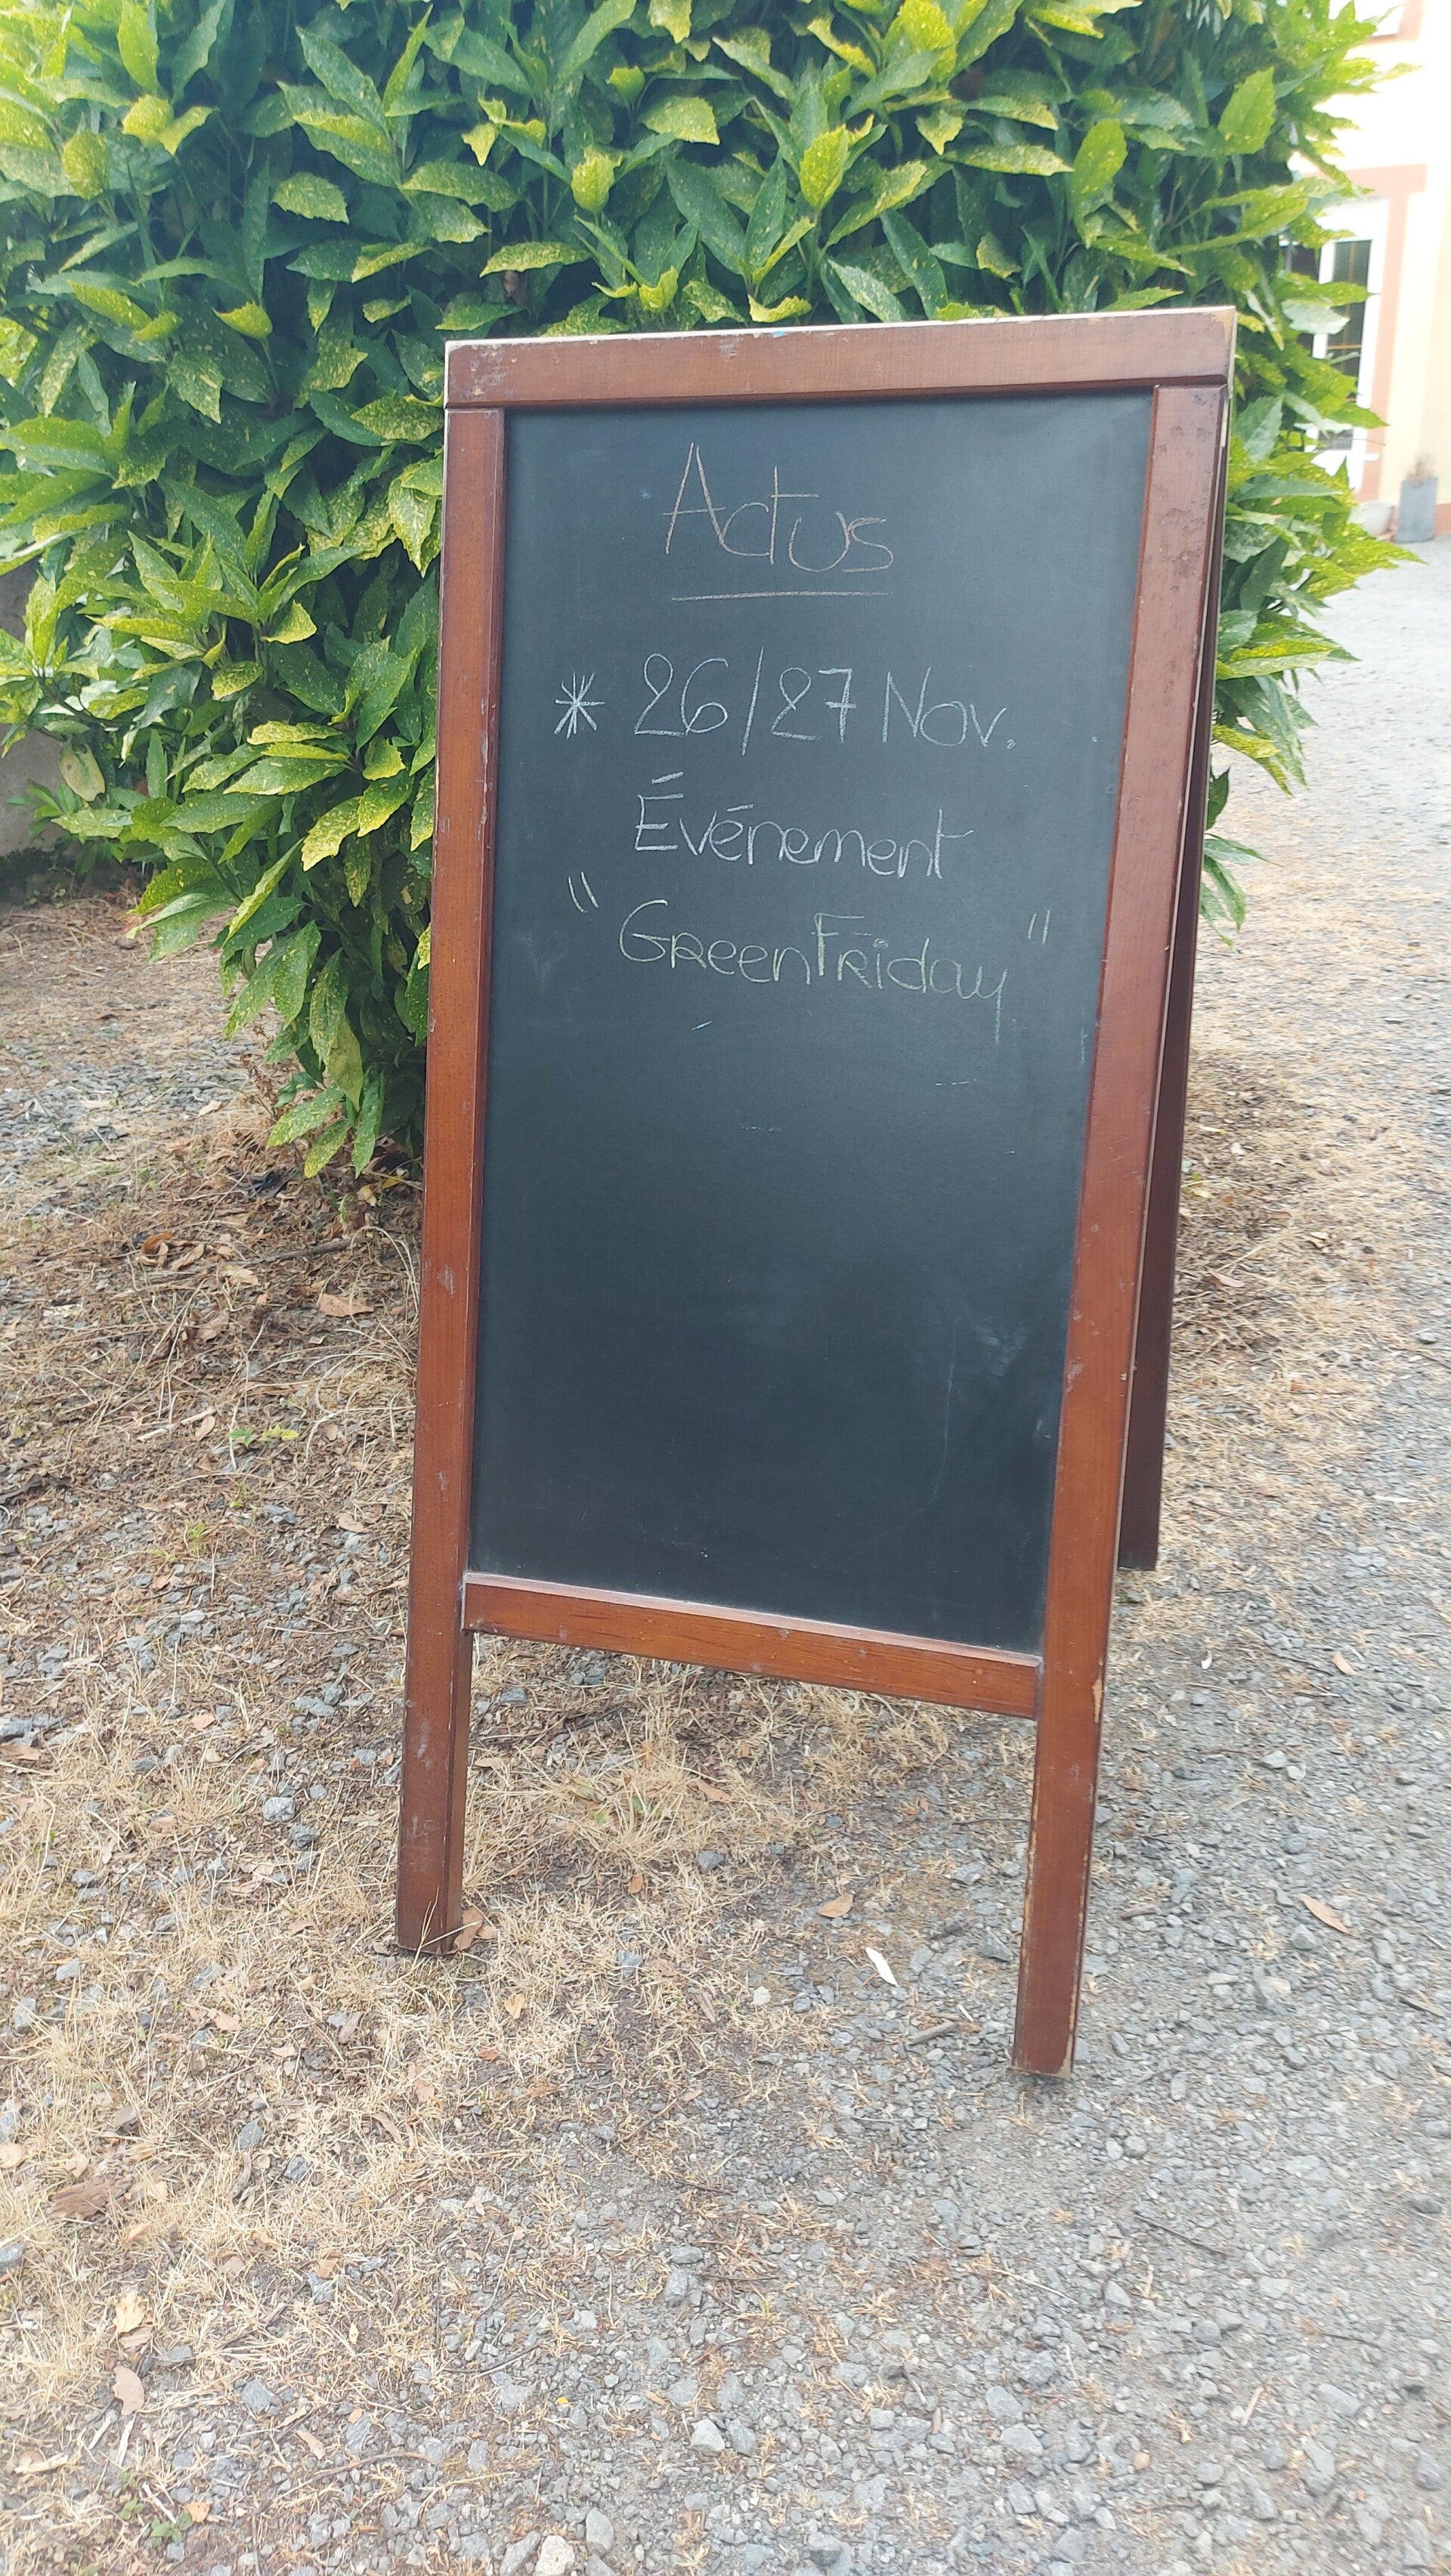 Actus
* 26/27 Nov.
Événement
"GreenFriday"